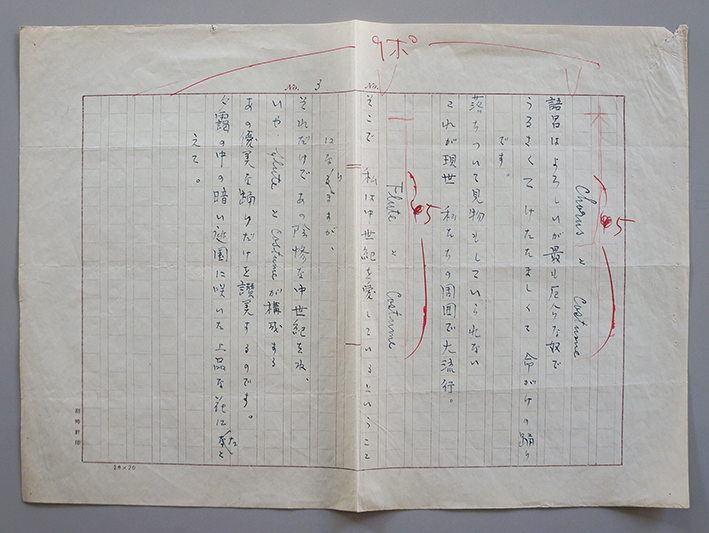 9ポ
No. 3
No.
5
Chorus と Costume
語呂はよろしいが最も厄介な奴で
うるさくてけたたましくて 命がけの踊り
です。
落ちついて見物もしていられない
これが現世 私たちの周囲で大流行。
5
Flute と Costume
そこで 私は中世紀を愛しているということ
になりますが、
それだけで あの陰惨な中世紀を、
いや flute と Costume が構成する
あの優美な踊りだけを讃美するのです。
夕靄の中の暗い庭園に咲いた上品な花に
たとえて。
20×20